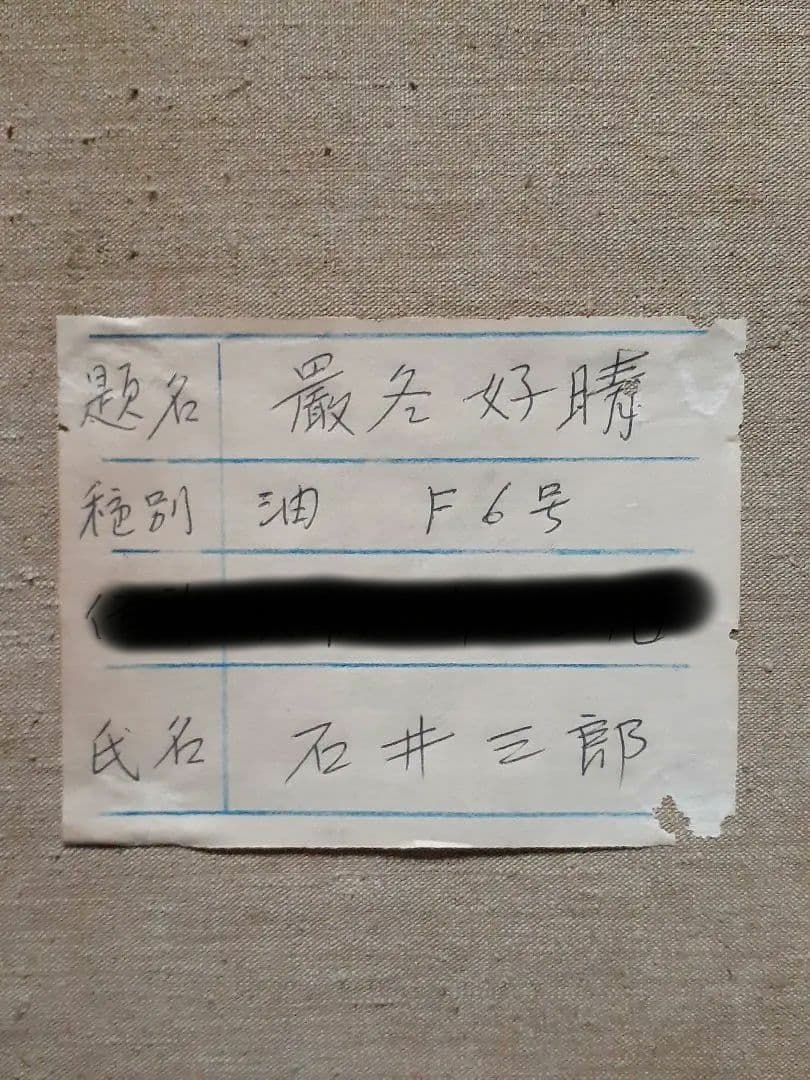 題名 嚴冬好晴
種別 油 F6号
氏名 石井三郎